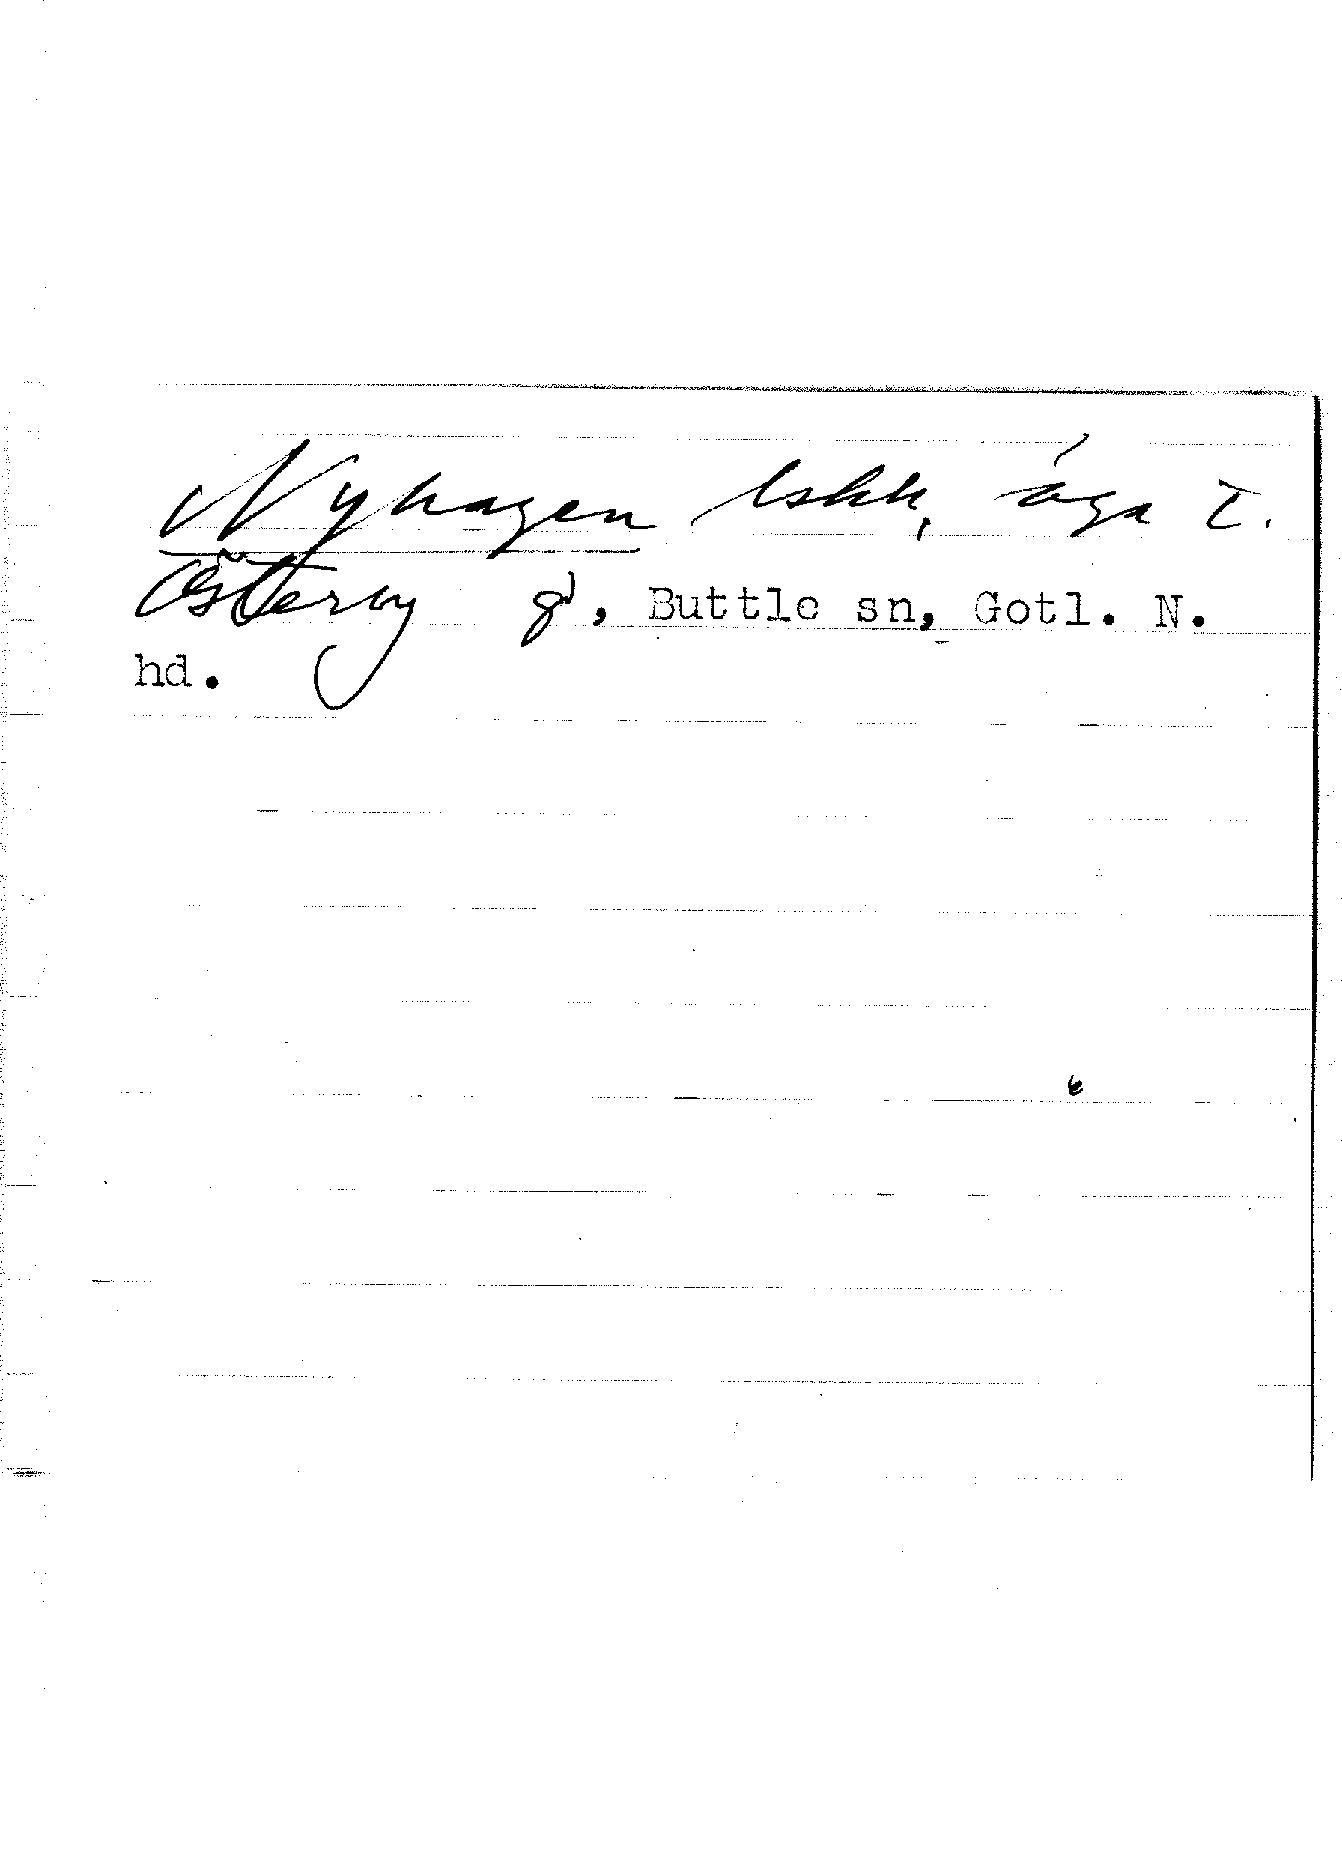 Nyhagen lskh, äga t.
Österby gd, Buttle sn, Gotl. N.
hd.